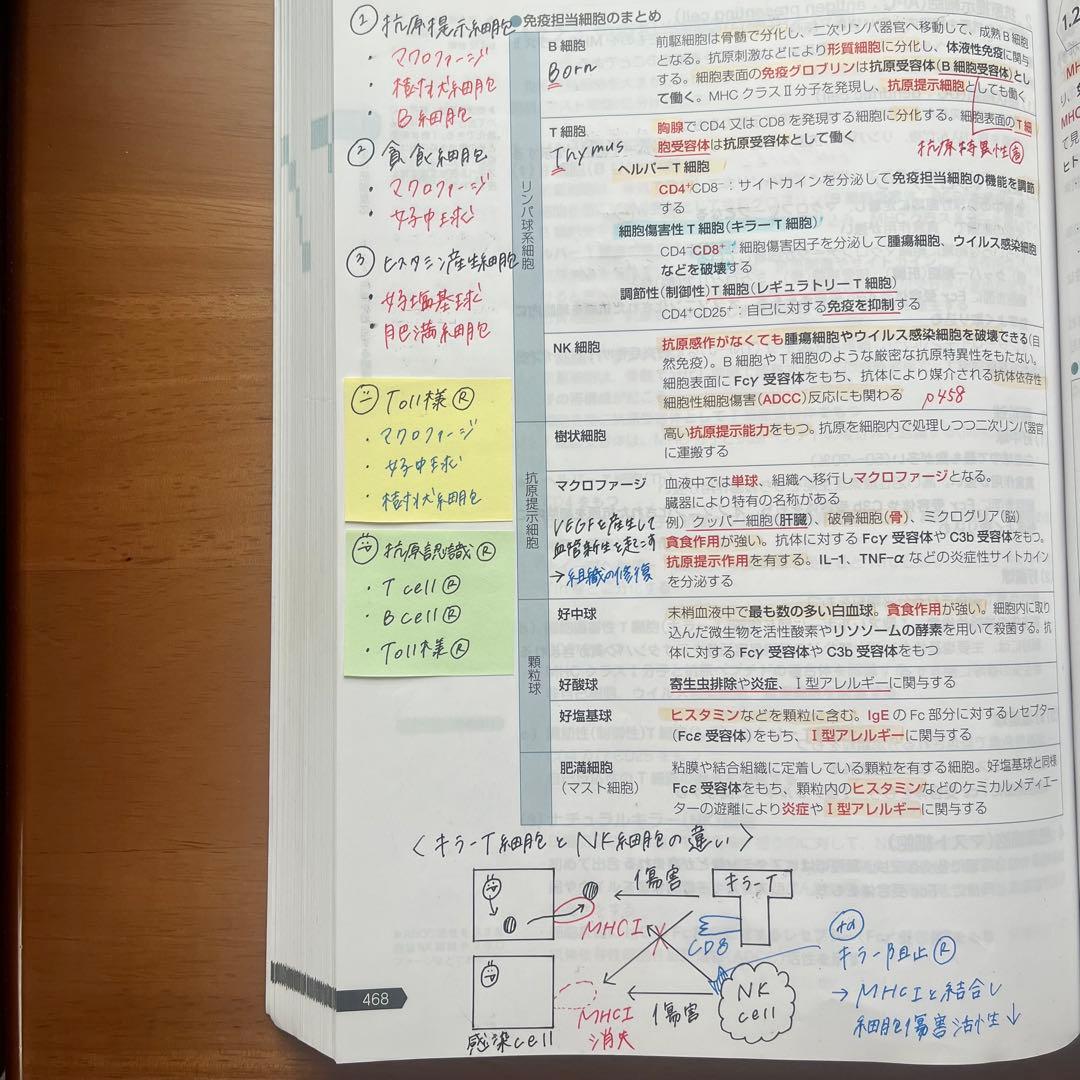 ① 抗原提示細胞
・マクロファージ
・樹状細胞
・B細胞
② 貪食細胞
・マクロファージ
・好中球
③ ヒスタミン産生細胞
・好塩基球
・肥満細胞
Toll様Ⓡ
・マクロファージ
・好中球
・樹状細胞
抗原認識Ⓡ
・T cellⓇ
・B cellⓇ
・Toll様Ⓡ
●免疫担当細胞のまとめ
リンパ球系細胞
B 細胞
Born
前駆細胞は骨髄で分化し、二次リンパ器官へ移動して、成熟 B 細胞
となる。抗原刺激などにより形質細胞に分化し、体液性免疫に関与
する。細胞表面の免疫グロブリンは抗原受容体(B 細胞受容体)とし
て働く。MHC クラスⅡ分子を発現し、抗原提示細胞としても働く
T 細胞
Thymus
胸腺で CD4 又は CD8 を発現する細胞に分化する。細胞表面の T 細
胞受容体は抗原受容体として働く
抗原特異性高
ヘルパー T 細胞
CD4⁺CD8⁻：サイトカインを分泌して免疫担当細胞の機能を調節
する
細胞傷害性 T 細胞(キラー T 細胞)
CD4⁻CD8⁺：細胞傷害因子を分泌して腫瘍細胞、ウイルス感染細胞
などを破壊する
調節性(制御性)T 細胞(レギュラトリー T 細胞)
CD4⁺CD25⁺：自己に対する免疫を抑制する
NK 細胞
抗原感作がなくても腫瘍細胞やウイルス感染細胞を破壊できる(自
然免疫)。B 細胞や T 細胞のような厳密な抗原特異性をもたない。
細胞表面に Fcγ 受容体をもち、抗体により媒介される抗体依存性
細胞性細胞傷害(ADCC)反応にも関わる
p458
抗原提示細胞
樹状細胞
高い抗原提示能力をもつ。抗原を細胞内で処理しつつ二次リンパ器官
に運搬する
マクロファージ
VEGFを産生して
血管新生を起こす
→組織の修復
血液中では単球、組織へ移行しマクロファージとなる。
臓器により特有の名称がある
例）クッパー細胞(肝臓)、破骨細胞(骨)、ミクログリア(脳)
貪食作用が強い。抗体に対する Fcγ 受容体や C3b 受容体をもつ。
抗原提示作用を有する。IL-1、TNF-α などの炎症性サイトカイン
を分泌する
顆粒球
好中球
末梢血液中で最も数の多い白血球。貪食作用が強い。細胞内に取り
込んだ微生物を活性酸素やリソソームの酵素を用いて殺菌する。抗
体に対する Fcγ 受容体や C3b 受容体をもつ
好酸球
寄生虫排除や炎症、Ⅰ型アレルギーに関与する
好塩基球
ヒスタミンなどを顆粒に含む。IgE の Fc 部分に対するレセプター
(Fcε 受容体)をもち、Ⅰ型アレルギーに関与する
肥満細胞
(マスト細胞)
粘膜や結合組織に定着している顆粒を有する細胞。好塩基球と同様
Fcε 受容体をもち、顆粒内のヒスタミンなどのケミカルメディエー
ターの遊離により炎症やⅠ型アレルギーに関与する
〈キラーT細胞とNK細胞の違い〉
傷害
キラーT
MHCⅠ
CD8
+α
キラー阻止Ⓡ
→MHCⅠと結合し
細胞傷害活性↓
NK
cell
傷害
MHCⅠ
消失
感染cell
468
1.2